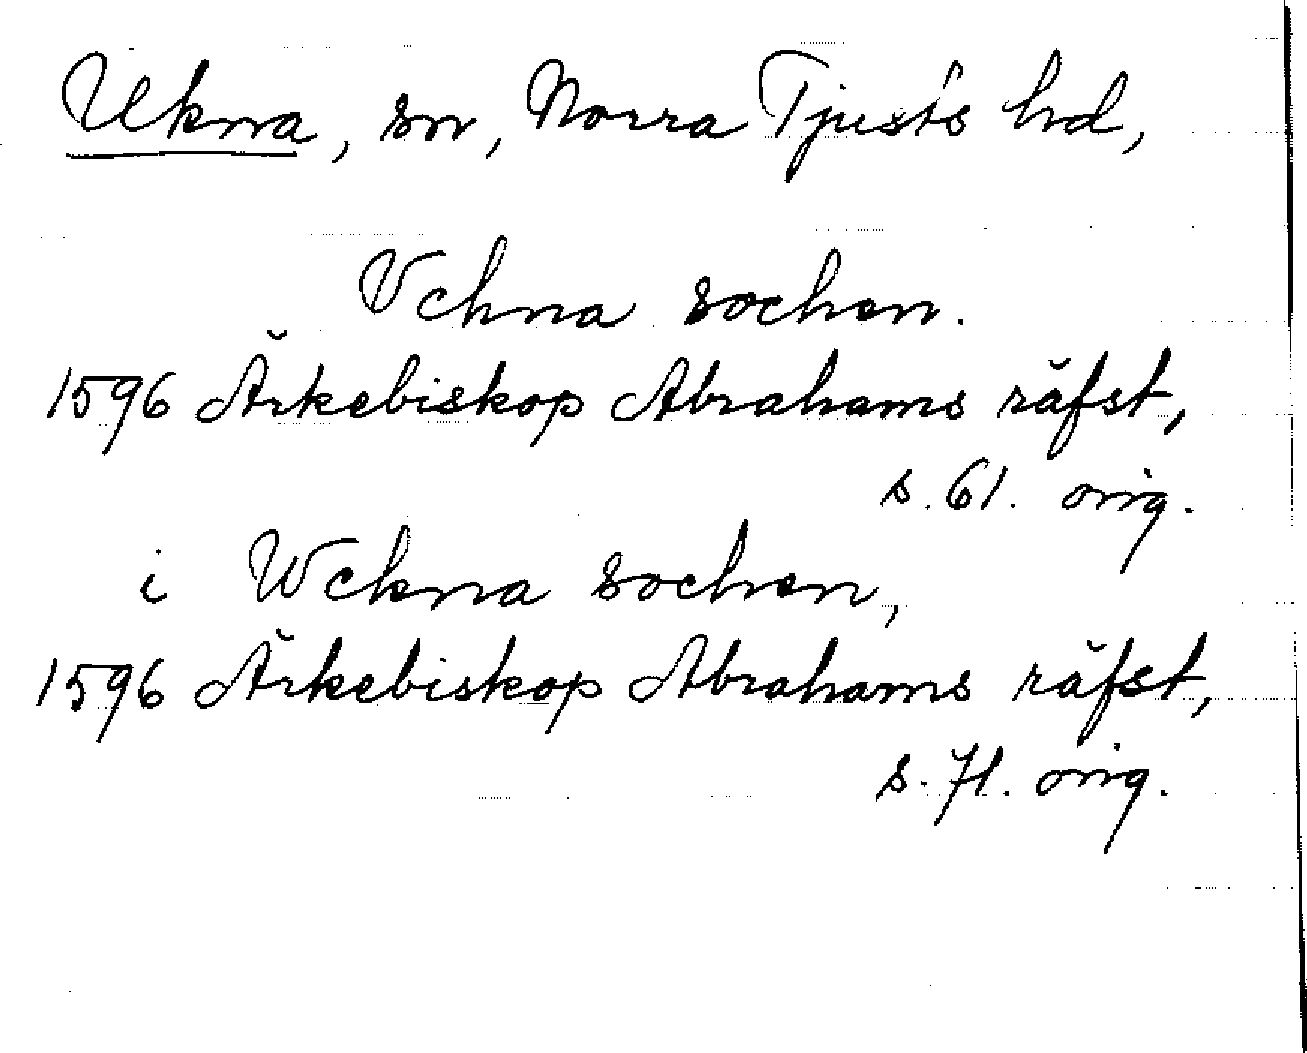 Ukna, sn, Norra Tjusts hd,
Vchna sochen.
1596 Ärkebiskop Abrahams räfst,
s. 61. orig.
i Wckna sochen,
1596 Ärkebiskop Abrahams räfst,
s. 71. orig.